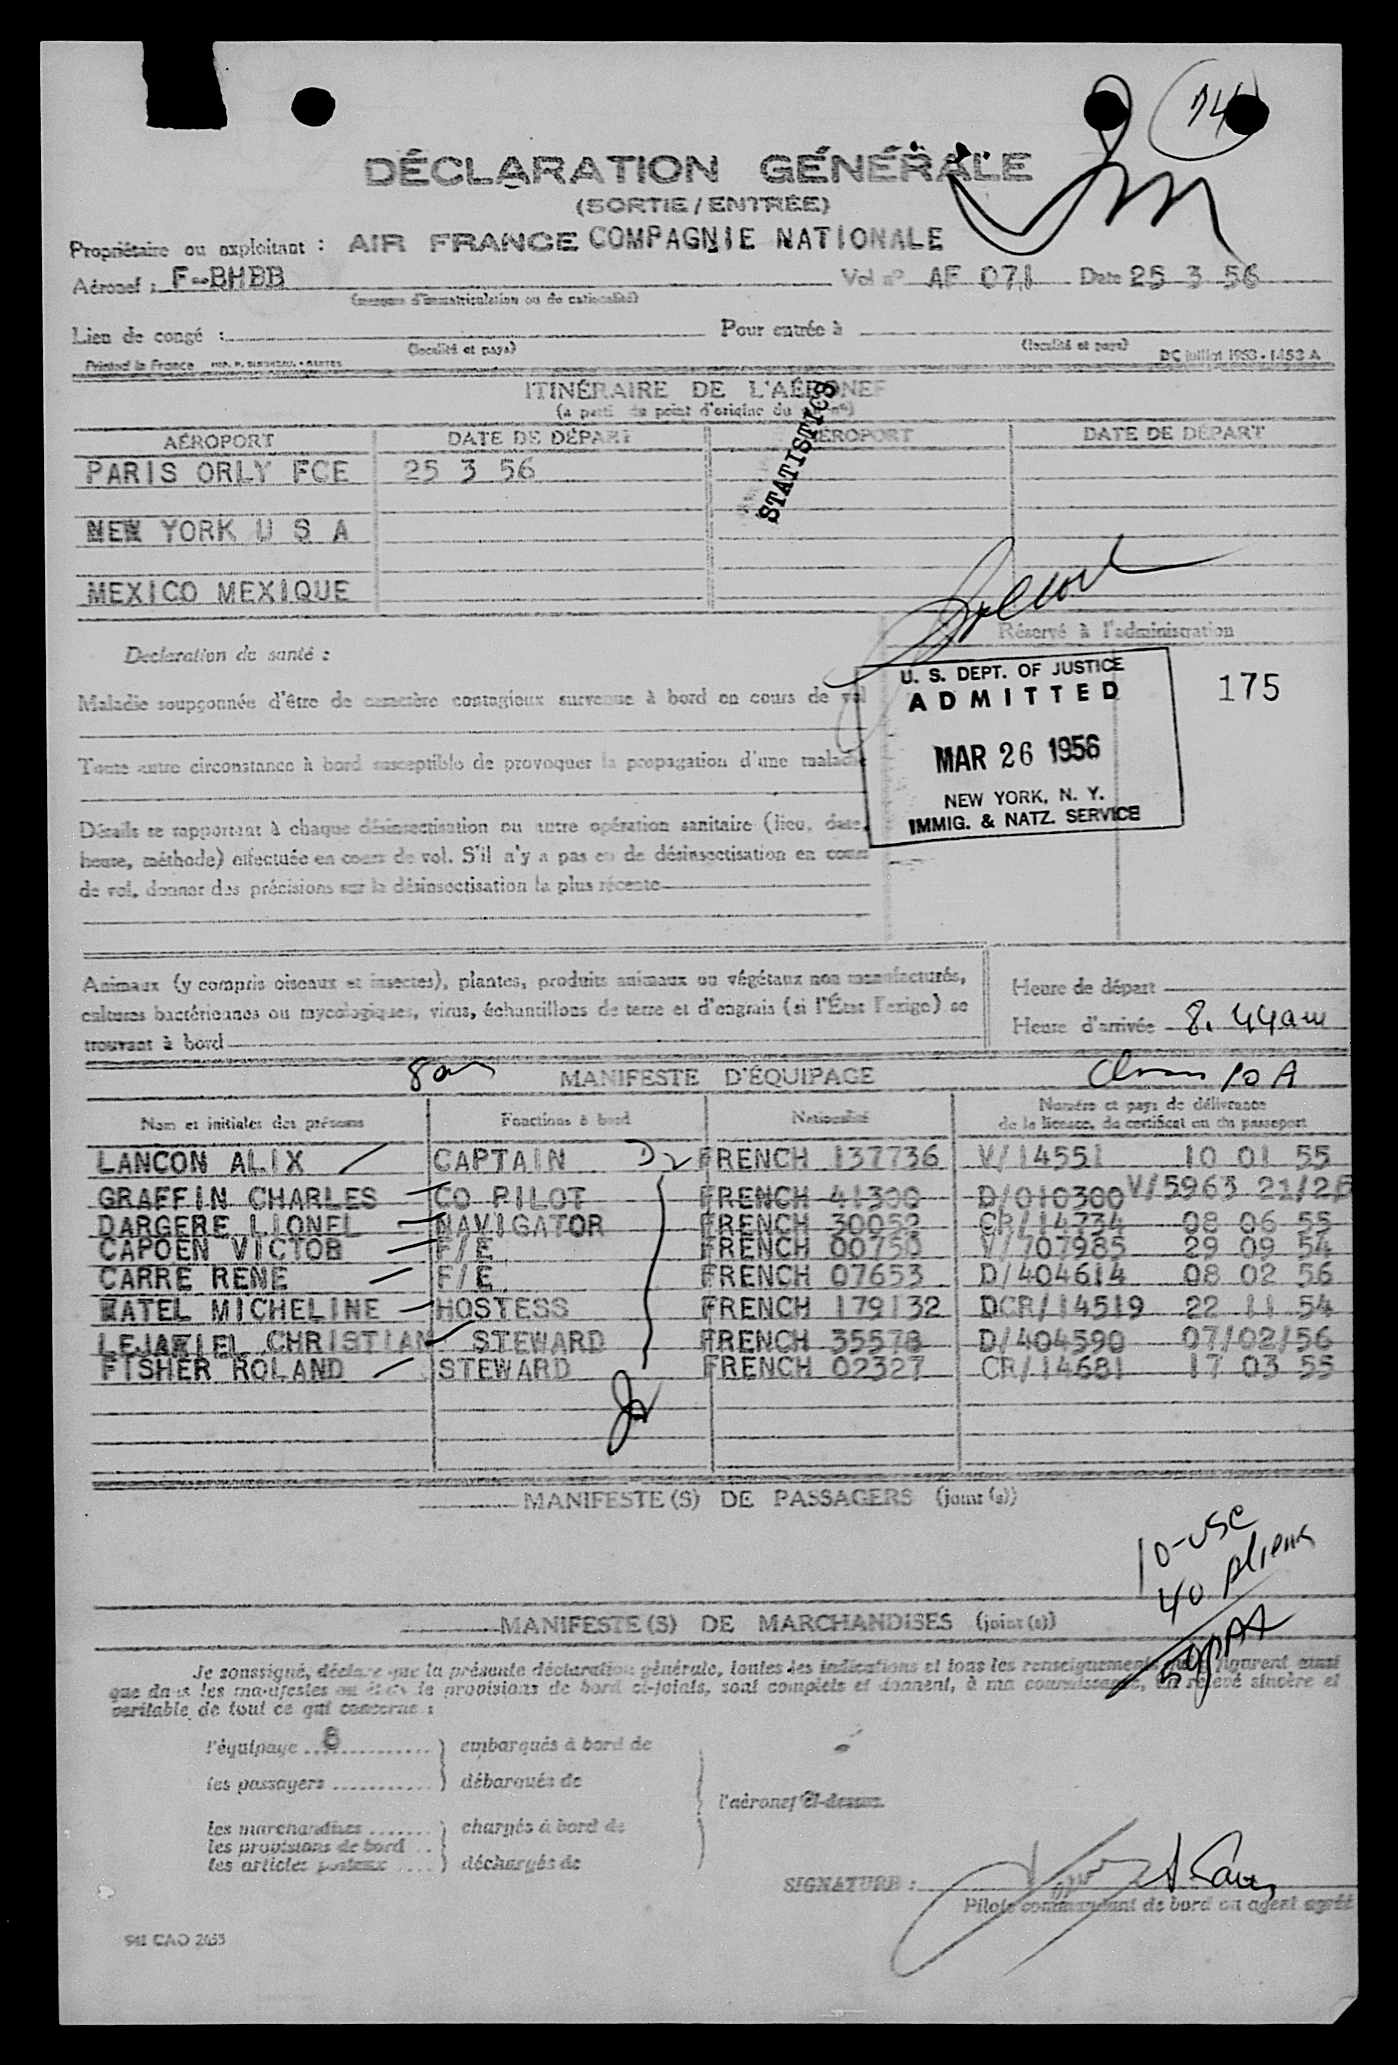 74
DÉCLARATION GÉNÉRALE
(SORTIE / ENTRÉE)
Propriétaire ou exploitant : AIR FRANCE COMPAGNIE NATIONALE
Aéronef : F-BHBB Vol n° AF 071 Date 25 3 56
(marques d'immatriculation ou de nationalité)
Lieu de congé : Pour entrée à
(localité et pays) (localité et pays)
Printed in France DC juillet 1953 - 1453 A
ITINÉRAIRE DE L'AÉRONEF
STATISTICS
AÉROPORT DATE DE DÉPART AÉROPORT DATE DE DÉPART
PARIS ORLY FCE 25 3 56
NEW YORK U S A
MEXICO MEXIQUE
Réservé à l'administration
Declaration de santé :
U. S. DEPT. OF JUSTICE
ADMITTED
MAR 26 1956
NEW YORK, N. Y.
IMMIG. & NATZ. SERVICE
175
Maladie soupçonnée d'être de caractère contagieux survenue à bord en cours de vol
Toute autre circonstance à bord susceptible de provoquer la propagation d'une maladie
Détails se rapportant à chaque désinsectisation ou autre opération sanitaire (lieu, date,
heure, méthode) effectuée en cours de vol. S'il n'y a pas eu de désinsectisation en cours
de vol, donner des précisions sur la désinsectisation la plus récente
Animaux (y compris oiseaux et insectes), plantes, produits animaux ou végétaux non manufacturés,
cultures bactériennes ou mycologiques, virus, échantillons de terre et d'engrais (si l'État l'exige) se
trouvant à bord
Heure de départ
Heure d'arrivée 8.44am
MANIFESTE D'ÉQUIPAGE
10 A
Nom et initiales des prénoms Fonctions à bord Nationalité Numéro et pays de délivrance
de la licence, du certificat ou du passeport
LANCON ALIX CAPTAIN D2 FRENCH 137736 V/14551 10 01 55
GRAFFIN CHARLES CO PILOT FRENCH 41300 D/010300 V/5963 21/2
DARGERE LIONEL NAVIGATOR FRENCH 30052 CR/14734 08 06 55
CAPOEN VICTOR F/E FRENCH 00750 V/707985 29 09 54
CARRE RENE F/E FRENCH 07653 D/404614 08 02 56
WATEL MICHELINE HOSTESS FRENCH 179132 DCR/14519 22 11 54
CHRISTIAN STEWARD FRENCH 35578 D/404590 07/02/56
FISHER ROLAND STEWARD FRENCH 02327 CR/14681 17 03 55
MANIFESTE(S) DE PASSAGERS (joint (s))
10-USC
40 Aliens
50 PAX
MANIFESTE(S) DE MARCHANDISES (joint (s))
Je soussigné, déclare que la présente déclaration générale, toutes les indications et tous les renseignements qui y figurent ainsi
que dans les manifestes ou états de provisions de bord ci-joints, sont complets et donnent, à ma connaissance, un relevé sincère et
véritable de tout ce qui concerne :
l'équipage 8 embarqués à bord de
les passagers débarqués de
l'aéronef ci-dessus.
les marchandises chargés à bord de
les provisions de bord
les articles postaux déchargés de
SIGNATURE :
Pilote commandant de bord ou agent agréé